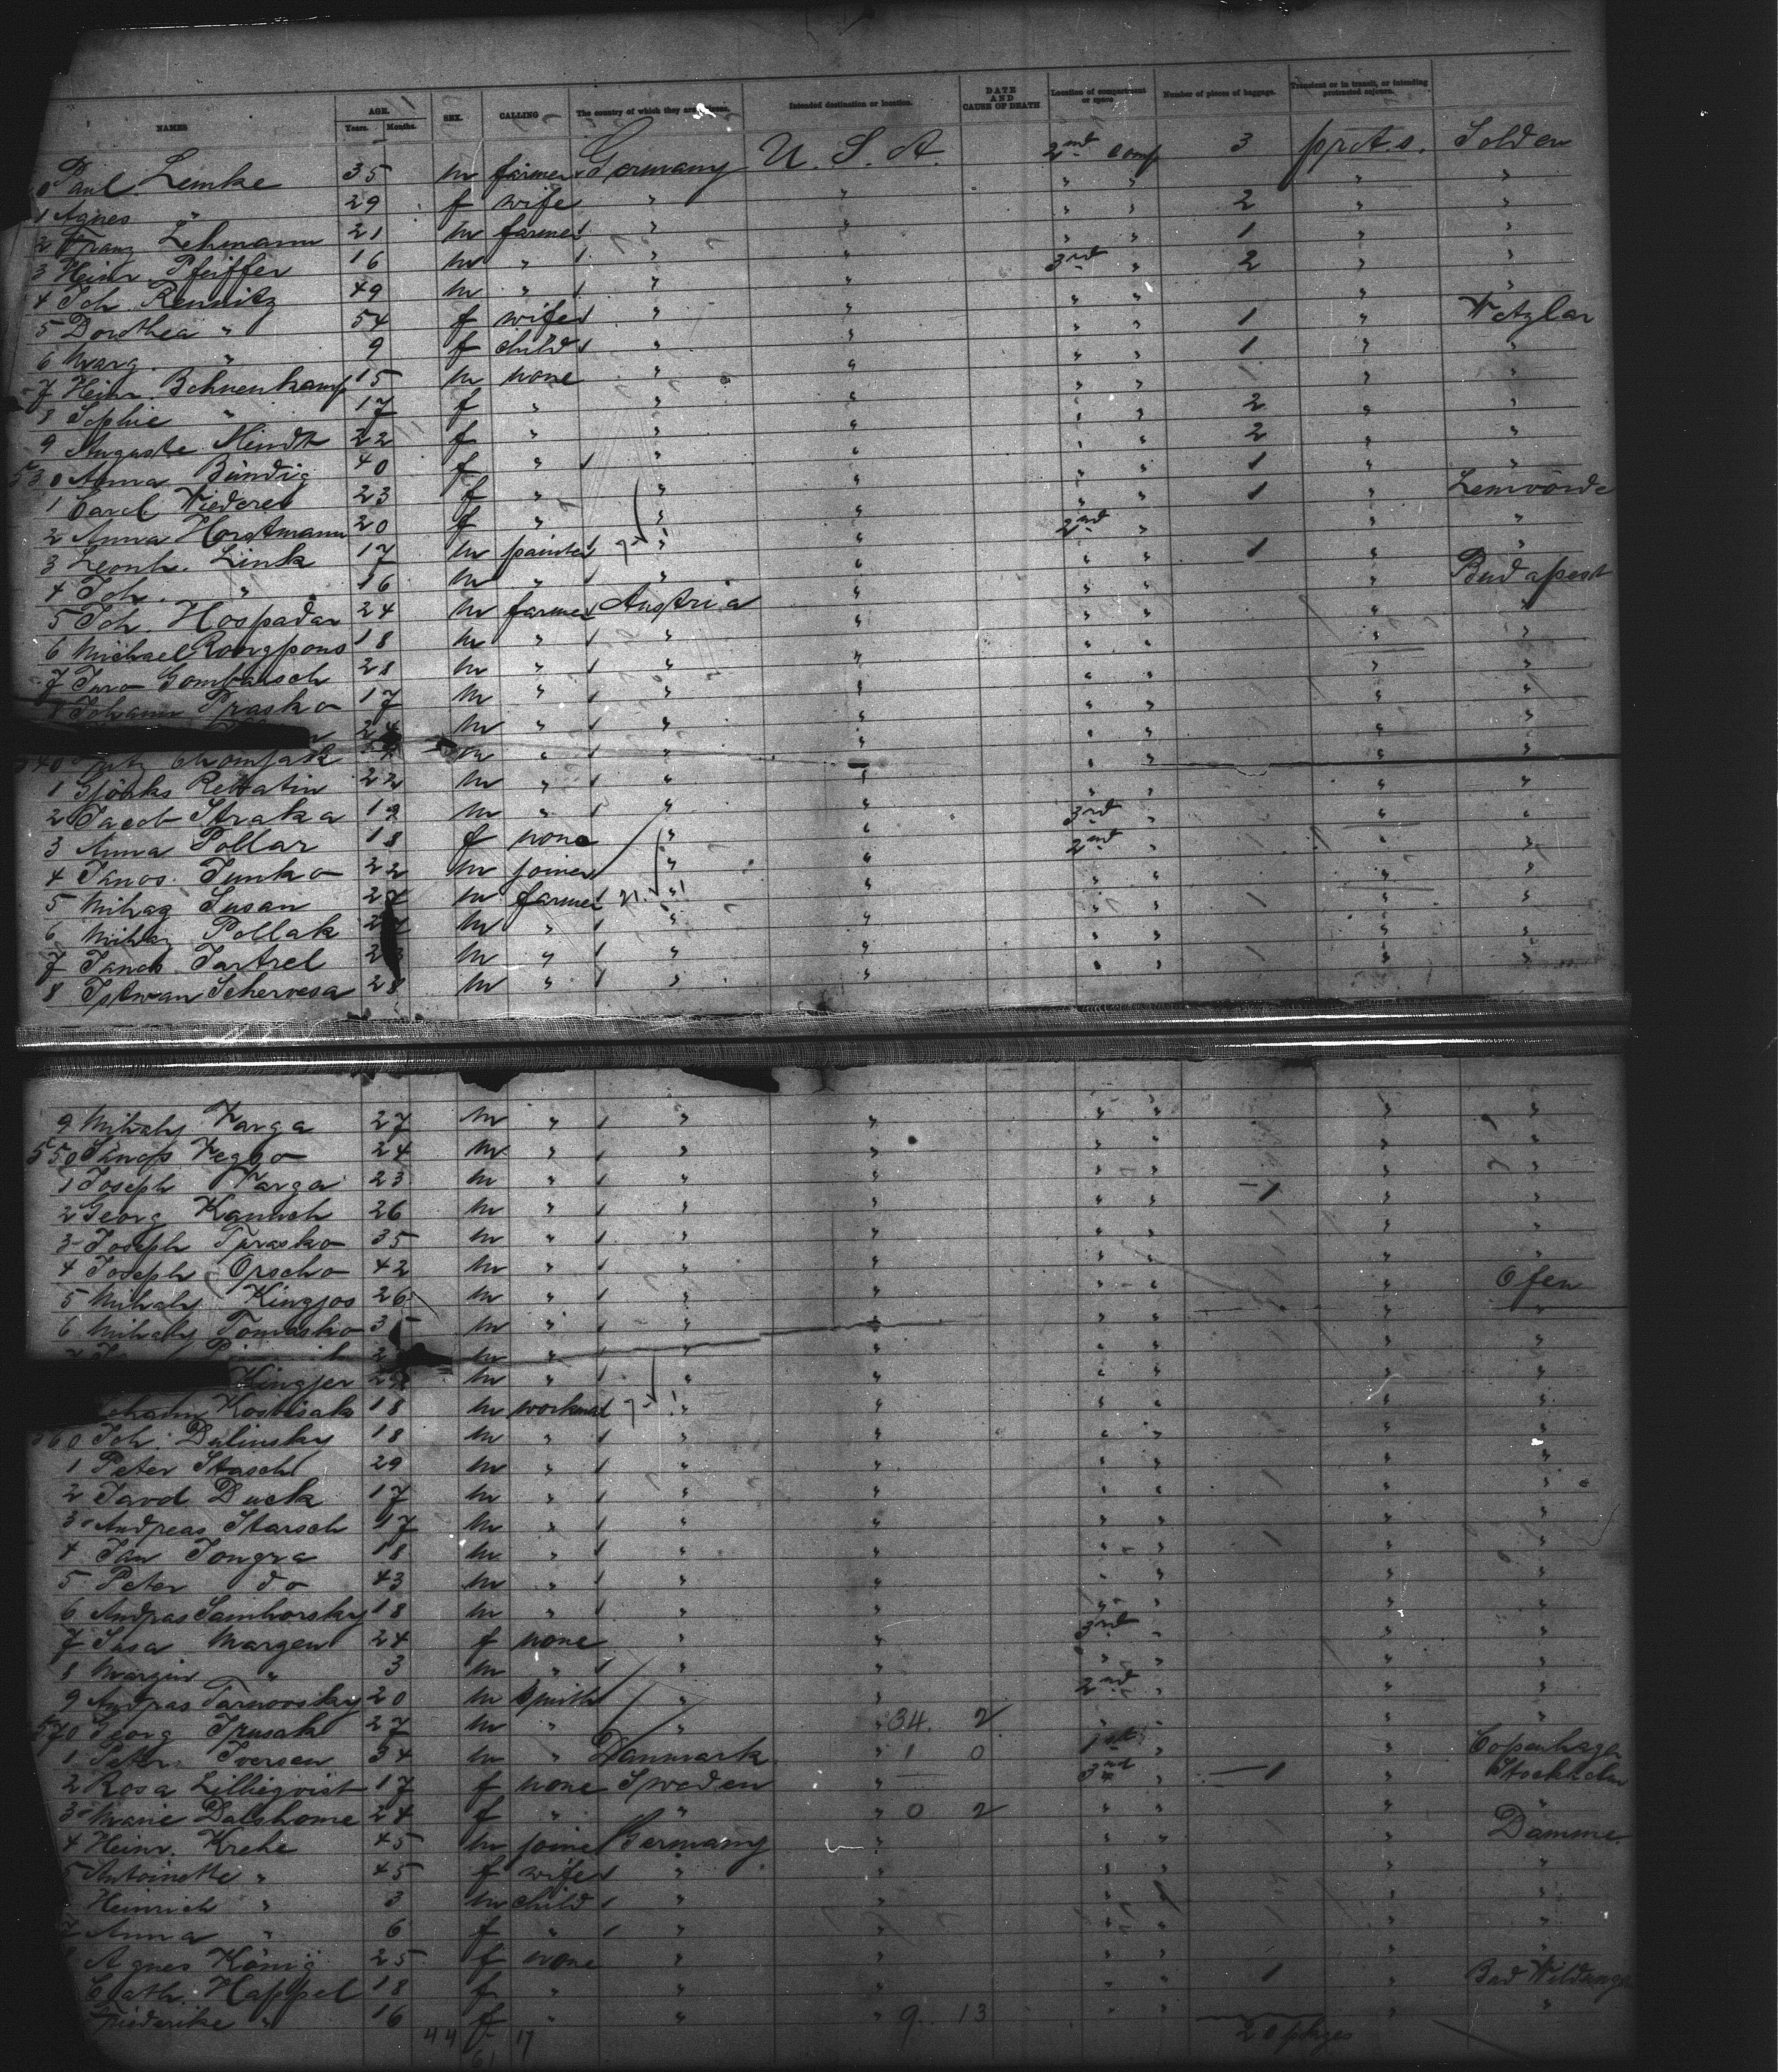 NAMES AGE. Years. Months. SEX. CALLING The country of which they are citizens. Intended destination or location. DATE AND CAUSE OF DEATH Location of compartment or space Number of pieces of baggage. Transient or in transit, or intending protracted sojourn.
0 Paul Lemke 35 m farmer Germany U. S. A. 2nd comp 3 prot. s. Solden
1 Agnes " 29 f wife " " " " " "
2 Franz Lehmann 21 m farmer " " " " 2 " "
3 Heinr. Pfeiffer 16 m " " " " " 1 " "
4 Joh. Rennitz 49 m " " " 3rd " 2 " "
5 Dorothea " 54 f wife " " " " " "
6 Marg. " 9 f child " " " " 1 " Wetzlar
7 Heinr. Bohnenkamp 15 m none " " " " 1 " "
8 Sophie " 17 f " " " " " " "
9 Auguste Meindt 22 f " " " " " 2 " "
530 Anna Bündig 40 f " " " " " 2 " "
1 Carol. Wiederes 23 f " " " " " 1 " "
2 Anna Horstmann 20 f " " " " " 1 " Lemvörde
3 Leonh. Link 17 m painter " " 2nd " " "
4 Joh. " 16 m " " " " " 1 " "
5 Joh. Hospadar 24 m farmer Austria " " " " Budapest
6 Michael 18 m " " " " " " "
7 Juro Gombarsch 28 m " " " " " " "
8 Johann Prasko 17 m " " " " " " "
24 m " " " " " " "
540 m " " " " " " "
1 Rettatin 22 m " " " " " " "
2 Jacob Straka 19 m " " " " " " "
3 Anna Pollar 18 f none " " 3rd " " "
4 Janos Junko 22 m joiner " " 2nd " " "
5 Mihaz Susan 27 m farmer " " " " " "
6 Mihaz Pollak m " " " " " " "
7 Janos Tartrel m " " " " " " "
8 Istwan Schervesa 28 m " " " " " " "
9 Mihaly Varga 27 m " " " " " " "
550 Janos 24 m " " " " " " "
1 Joseph Varga 23 m " " " " " " "
2 Georg Kannch 26 m " " " " " 1 " "
3 Joseph Prasko 35 m " " " " " " "
4 Joseph Opscho 42 m " " " " " " "
5 Mihaly Kingjos 26 m " " " " " " Ofen
6 Mihaly Tomasko m " " " " " " "
m " " " " " " "
Kingjer m " " " " " " "
Kostisak 18 m workman " " " " " "
560 Joh. Dulinsky 18 m " " " " " " "
1 Peter Stasch 29 m " " " " " " "
2 Duck 17 m " " " " " " "
3 Andreas Starsch 17 m " " " " " " "
4 Jan Jongra 18 m " " " " " " "
5 Peter do 43 m " " " " " " "
6 Andras Samhorsky 18 m " " " " " " "
7 Susa Margen 24 f none " " 3rd " " "
8 Margin " 3 m " " " " " " "
9 Andras Tarnovsky 20 m smith " " 2nd " " "
570 Georg Trusak 27 m " " " 34. 2 " " " "
1 Peter Iversen 34 m " Danmark " 1 0 1st " " Copenhagen
2 Rosa Lilliegvist 17 f none Sweden " 3rd " 1 " Stockholm
3 Marie Dalshome 24 f " " " 0 2 " " " "
4 Heinr. Krehe 45 m joiner Germany " " " " Damme
5 Antoinette " 45 f wife " " " " " "
Heinrich " 3 m child " " " " " "
7 Anna " 6 f " " " " " " "
8 Agnes König 25 f none " " " " " "
Cath. Happel 18 f " " " " " 1 " Bad Wildunge
Friederike " 16 f " " " 9. 13 " " " "
44 61 17 20 pkges